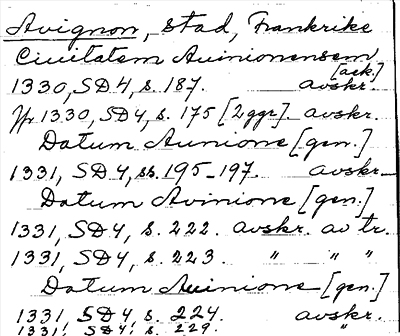 Avignon, stad, Frankrike
Civitatem Avinionensem
[ack.]
1330, SD4, s. 187. avskr.
1330, SD4, s. 175 [2ggr]. avskr.
Datum Auinione [gen.]
1331, SD4, ss. 195-197. avskr.
Datum Avinione [gen.]
1331, SD4, s. 222. avskr. av tr.
1331, SD4, s. 223. " " "
Datum Auinione [gen.]
1331, SD4, s. 224. avskr.
1331, SD4, s. 229. "